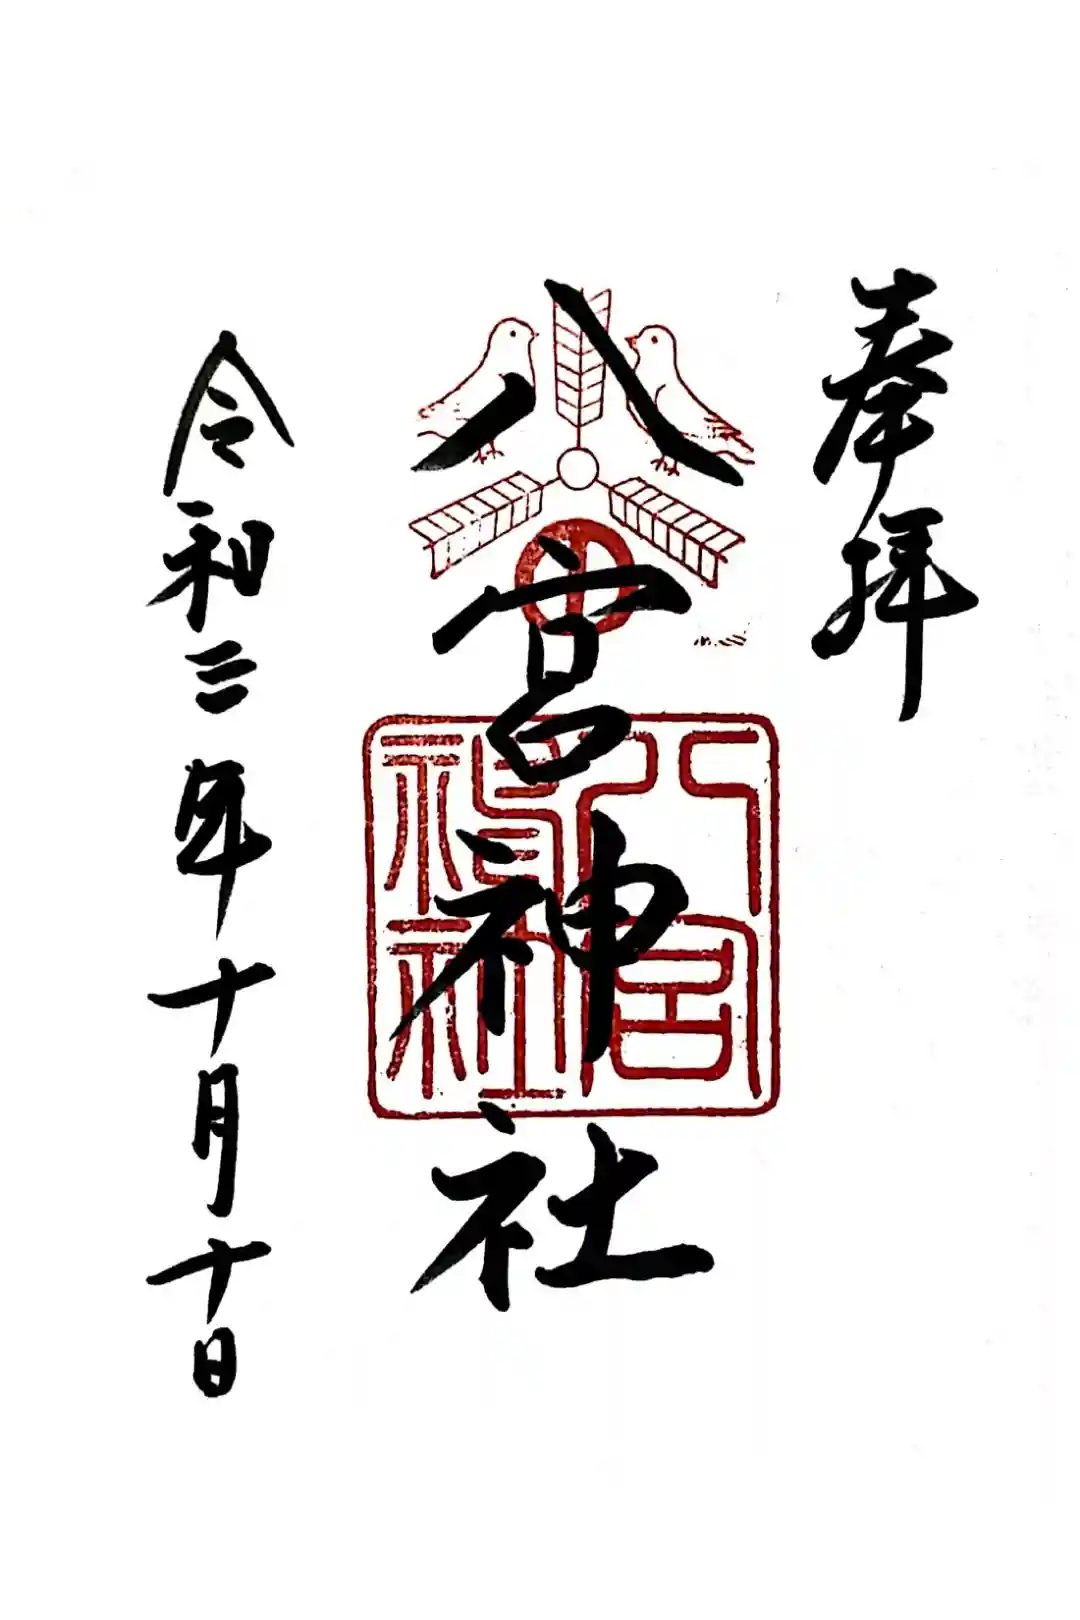 奉拝
八宮神社
八宮神社
令和三年十月十日